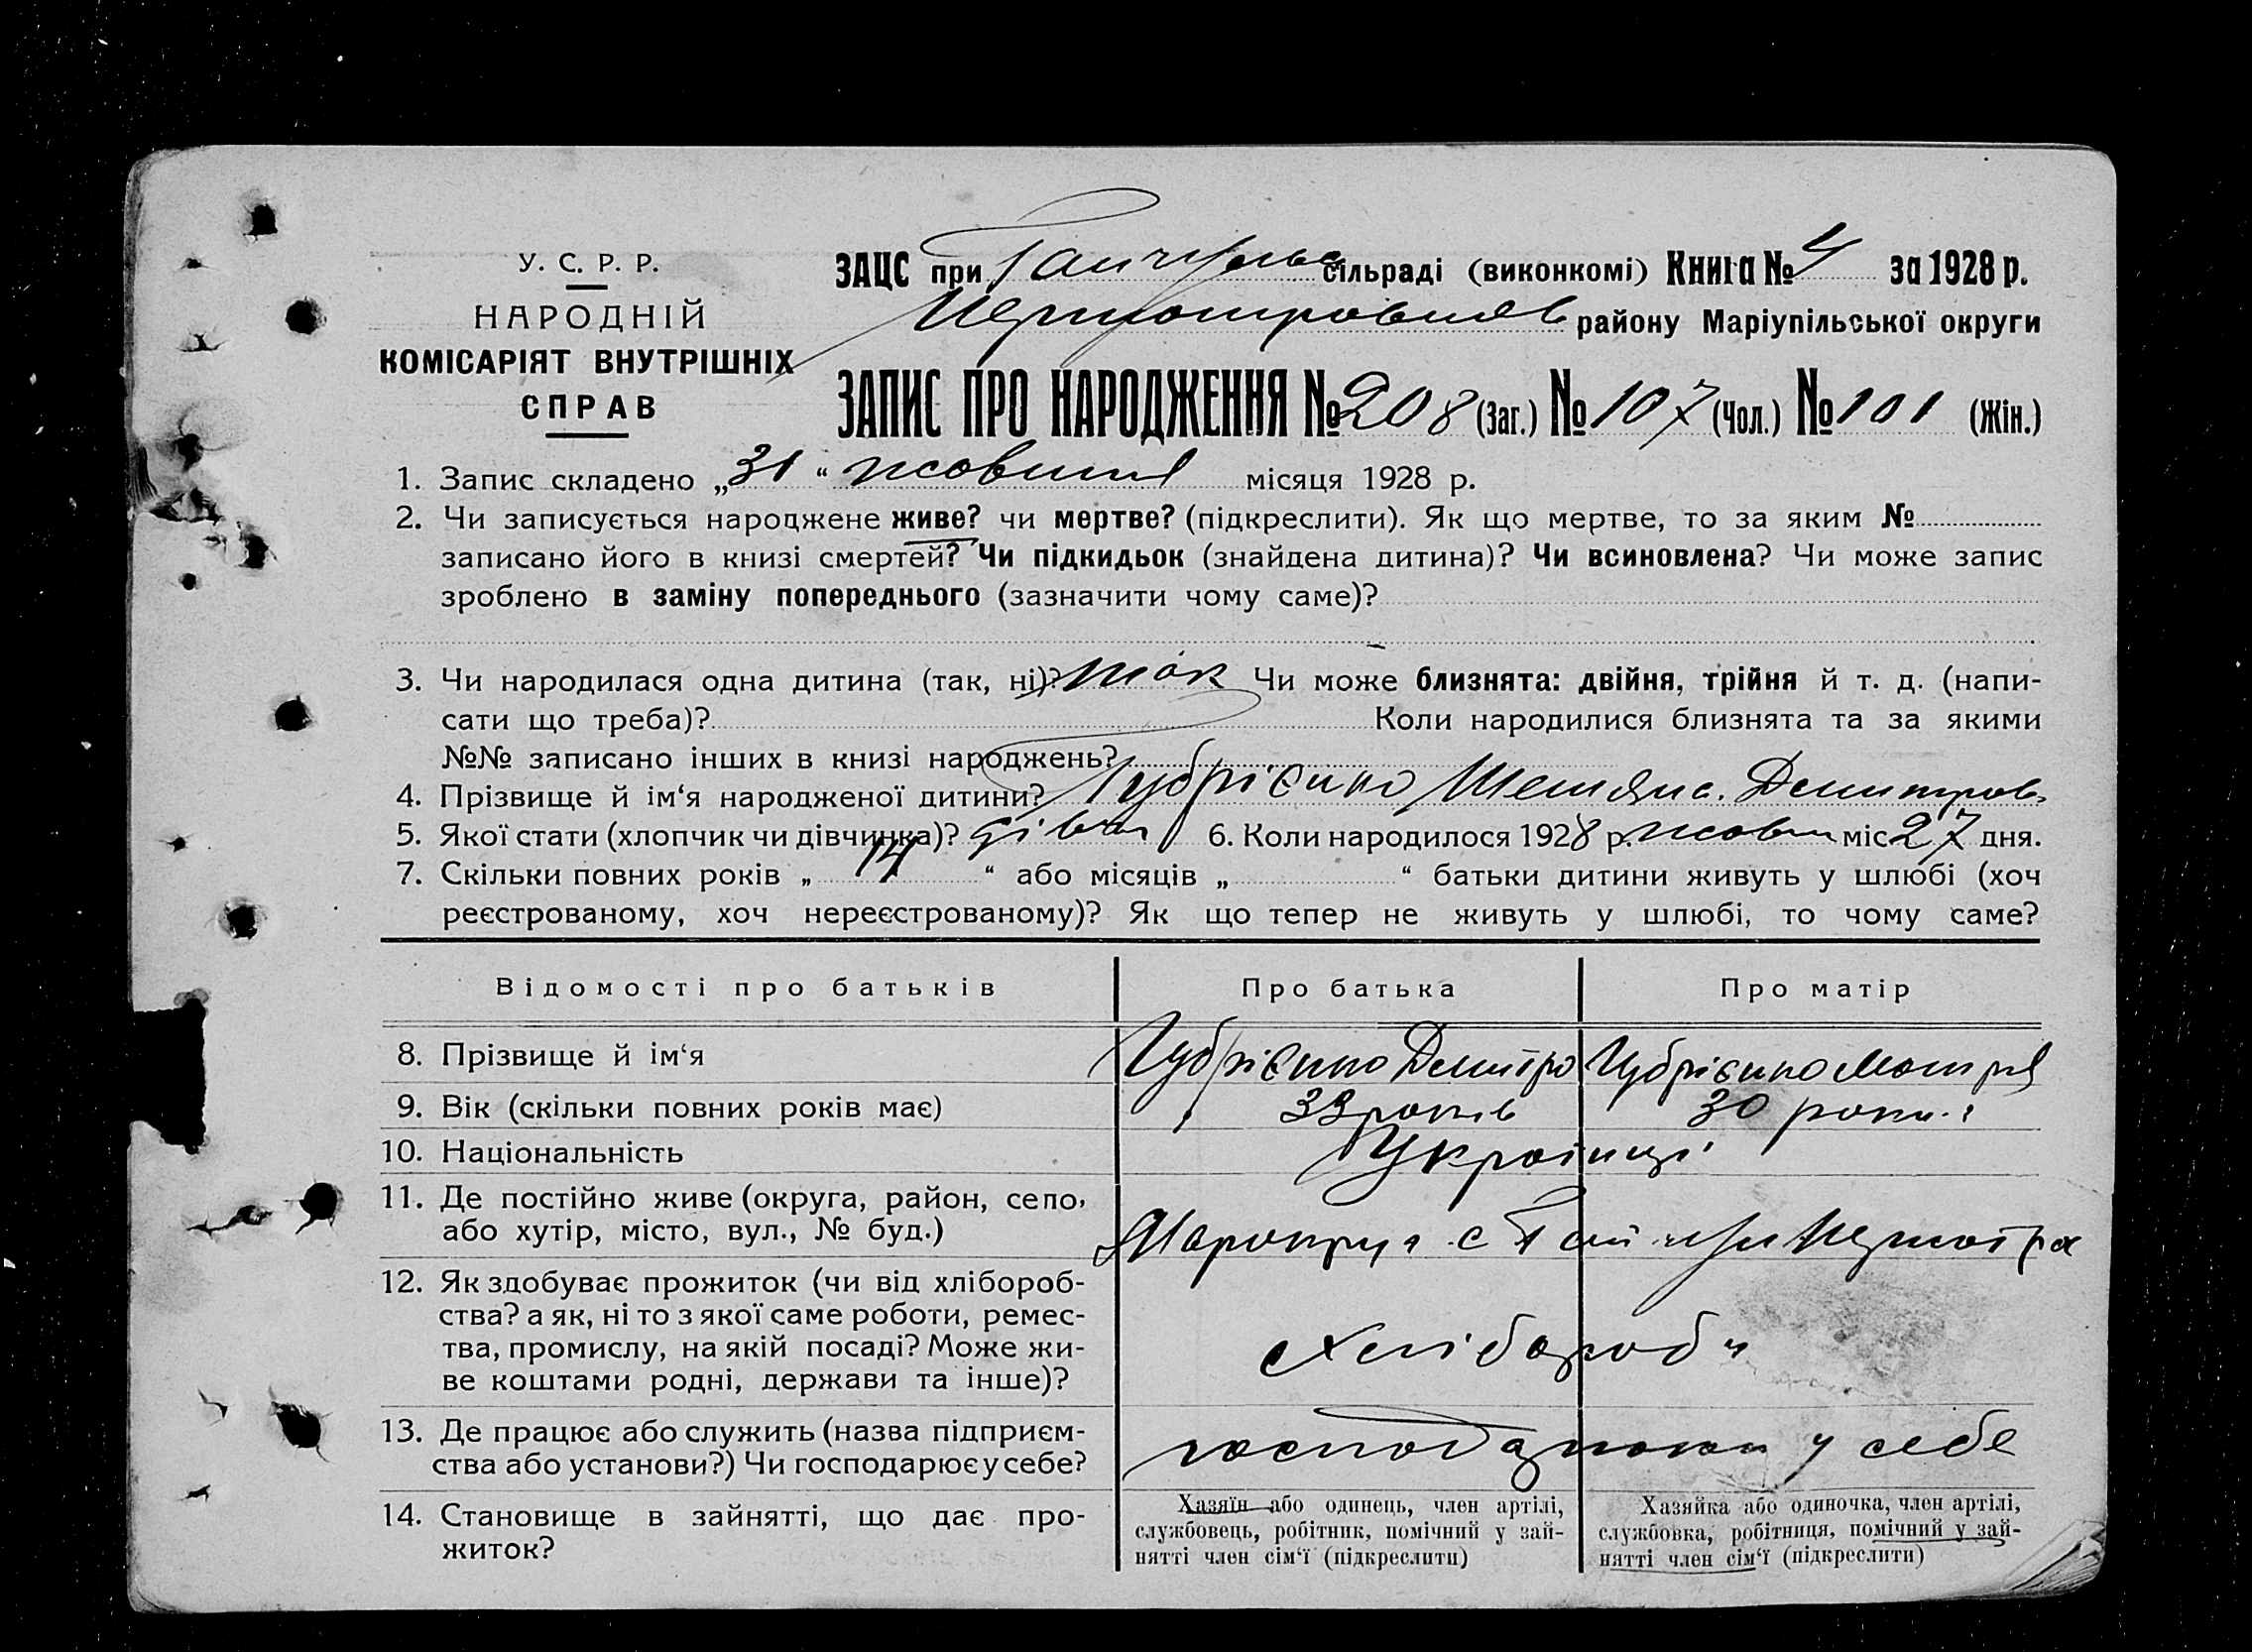 У. С. Р. Р.
НАРОДНІЙ
КОМІСАРІЯТ ВНУТРІШНІХ
СПРАВ
ЗАЦС при сільраді (виконкомі) Книга № 4 за 1928 р.
району Маріупільської округи
ЗАПИС ПРО НАРОДЖЕННЯ № 208 (Заг.) № 107 (Чол.) № 101 (Жін.)
1. Запис складено „31“ жовтня місяця 1928 р.
2. Чи записується народжене живе? чи мертве? (підкреслити). Як що мертве, то за яким №
записано його в книзі смертей? Чи підкидьок (знайдена дитина)? Чи всиновлена? Чи може запис
зроблено в заміну попереднього (зазначити чому саме)?
3. Чи народилася одна дитина (так, ні)? так Чи може близнята: двійня, трійня й т. д. (напи-
сати що треба)? Коли народилися близнята та за якими
№№ записано інших в книзі народжень?
4. Прізвище й ім‘я народженої дитини? Губрієнко
5. Якої стати (хлопчик чи дівчинка)? дівч 6. Коли народилося 1928 р. жовтн міс 27 дня.
7. Скільки повних років „ 14 “ або місяців „ “ батьки дитини живуть у шлюбі (хоч
реєстрованому, хоч нереєстрованому)? Як що тепер не живуть у шлюбі, то чому саме?
Відомості про батьків Про батька Про матір
8. Прізвище й ім‘я Губрієнко Дмитро Губрієнко Мотря
9. Вік (скільки повних років має) 33 років 30 років
10. Національність Українці
11. Де постійно живе (округа, район, село,
або хутір, місто, вул., № буд.)
12. Як здобуває прожиток (чи від хлібороб-
ства? а як, ні то з якої саме роботи, ремес-
тва, промислу, на якій посаді? Може жи-
ве коштами родні, держави та інше)?
Хлібороби
13. Де працює або служить (назва підприєм-
ства або установи?) Чи господарює у себе?
у себе
14. Становище в зайнятті, що дає про-
житок?
Хазяїн або одинець, член артілі,
службовець, робітник, помічний у зай-
нятті член сім‘ї (підкреслити)
Хазяйка або одиночка, член артілі,
службовка, робітниця, помічний у зай-
нятті член сім‘ї (підкреслити)